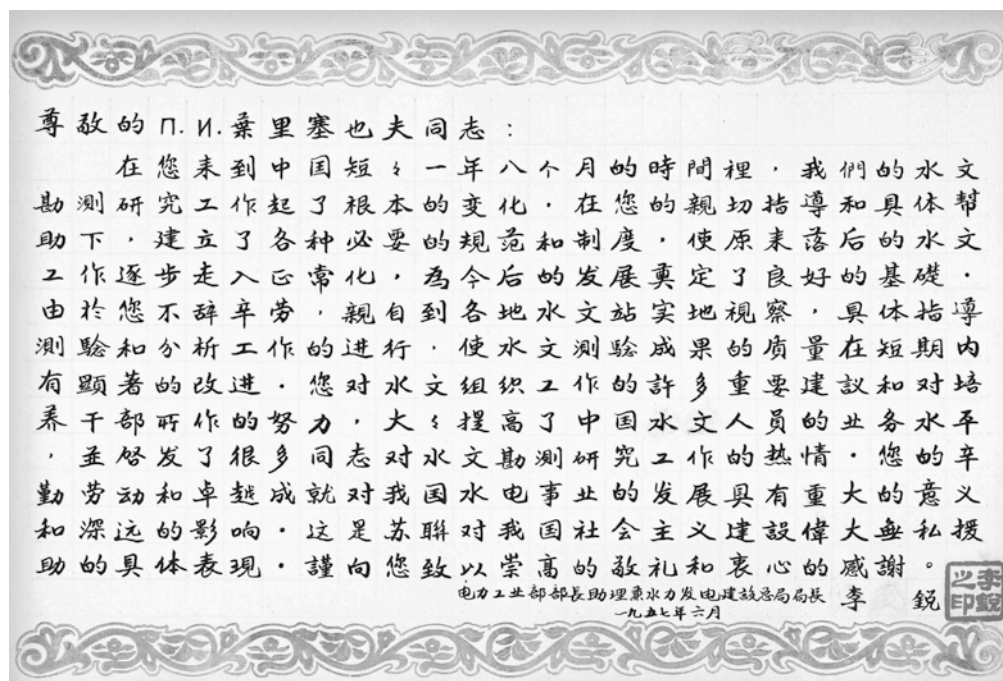 尊敬的П.И.葉里塞也夫同志：
在您来到中国短々一年八个月的時間裡，我們的水文
勘測研究工作起了根本的变化．在您的親切指導和具体幫
助下，建立了各种必要的規范和制度，使原来落后的水文
工作逐步走入正常化，為今后的发展奠定了良好的基礎．
由於您不辞辛劳，親自到各地水文站实地視察，具体指導
測驗和分析工作的进行．使水文測驗成果的质量在短期内
有顕著的改进．您对水文组织工作的許多重要建議和对培
养干部所作的努力，大々提高了中国水文人員的业务水平
，並啓发了很多同志对水文勘測研究工作的热情．您的辛
勤劳动和卓越成就对我国水电事业的发展具有重大的意义
和深远的影响．这是苏联对我国社会主义建設偉大無私援
助的具体表現．謹向您致以崇高的敬礼和衷心的感謝。
电力工业部部長助理兼水力发电建設总局局長 李 鋭
一九五七年六月
李鋭之印